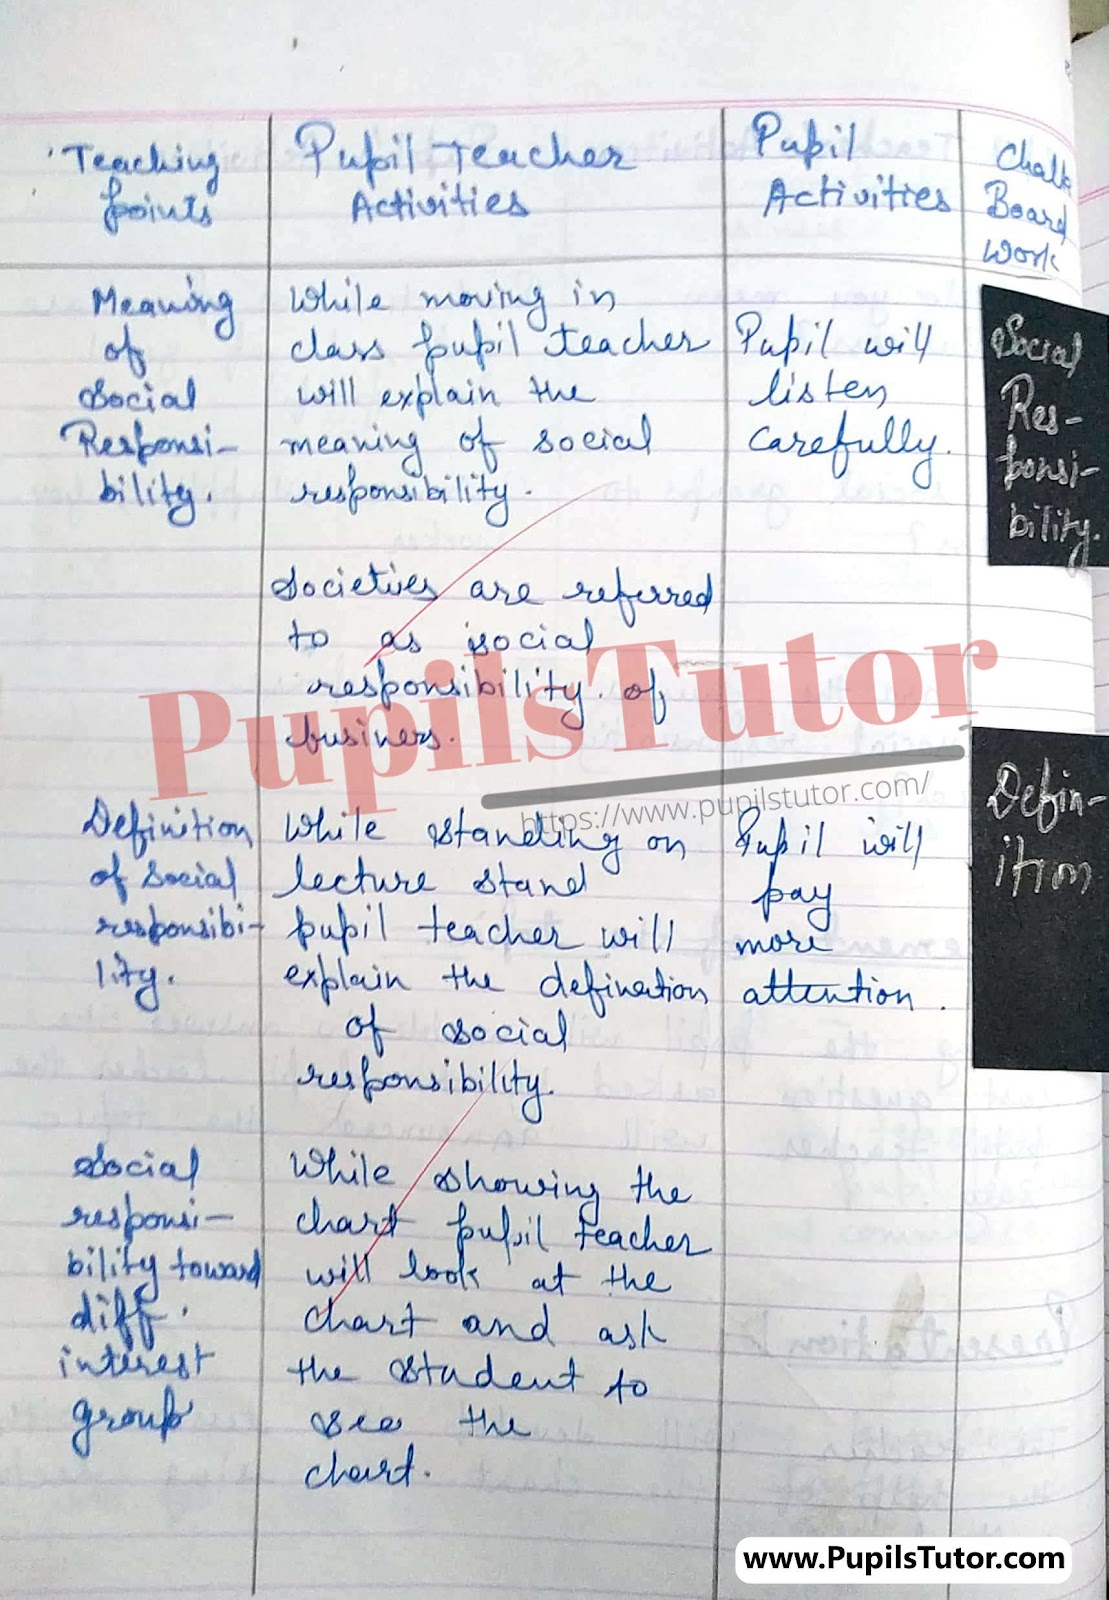 Teaching
points
Pupil Teacher
Activities
Pupil
Activities
Chalk
Board
Work
Meaning
of
Social
Responsi-
bility.
While moving in
class pupil teacher
will explain the
meaning of social
responsibility.
Societies are referred
to as social
responsibility of
business.
Pupil will
listen
carefully.
Social
Res-
ponsi-
bility.
PupilsTutor
https://www.pupilstutor.com/
Definition
of Social
responsibi-
lity.
While standing on
lecture stand
pupil teacher will
explain the defination
of social
responsibility.
Pupil will
pay
more
attention.
Defin-
ition
Social
responsi-
bility toward
diff.
interest
group
While showing the
chart pupil teacher
will look at the
chart and ask
the student to
see the
chart.
www.PupilsTutor.com